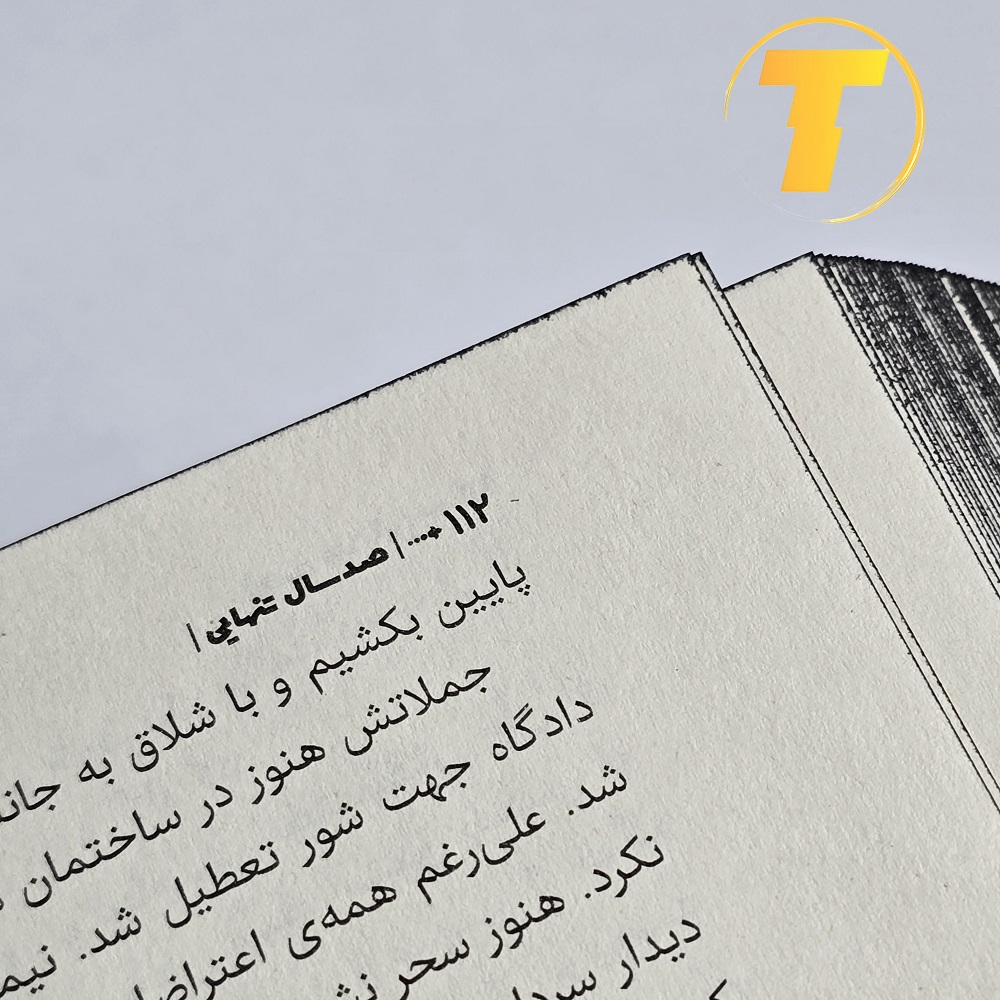 T
۱۱۲ | صد سال تنهایی |
پایین بکشیم و با شلاق به
جملاتش هنوز در ساختمان
دادگاه جهت شور تعطیل شد.
شد. علی‌رغم همه‌ی
نکرد. هنوز سحر
دیدار